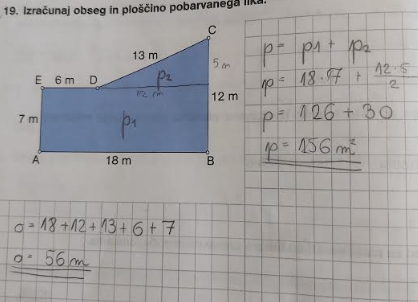 19. Izračunaj obseg in ploščino pobarvanega lika.
C
13 m
5 m
E 6 m D
p2
12 m
12 m
7 m
p1
A 18 m B
p = p1 + p2
p = 18·7 + 12·5/2
p = 126 + 30
p = 156 m²
o = 18+12+13+6+7
o = 56 m